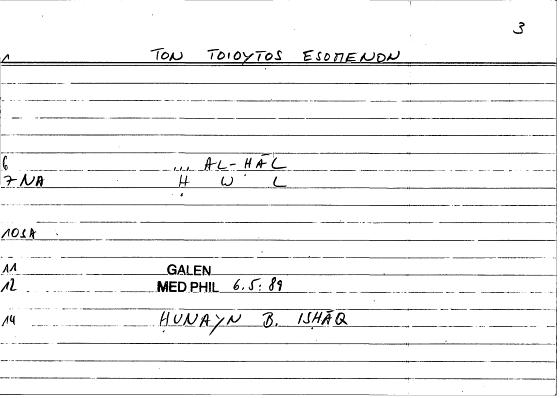 3
1 TON TOIOYTOS ESOMENON
6 ... AL-ḤĀL
7 NA Ḥ W L
10SA .
11 GALEN
12 MED PHIL 6.5: 89
14 ḤUNAYN B. ISḤĀQ